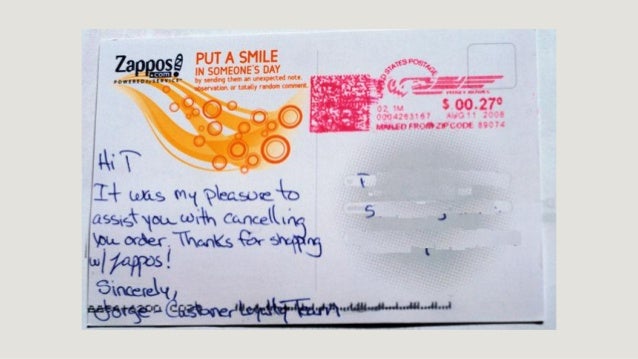 Zappos.com
POWERED by SERVICE
PUT A SMILE
IN SOMEONE'S DAY
by sending them an unexpected note,
observation, or totally random comment.
UNITED STATES POSTAGE
PITNEY BOWES
02 1M
$ 00.27⁰
0004263167 AUG 11 2008
MAILED FROM ZIP CODE 89074
Hi T
It was my pleasure to
assist you with cancelling
you order. Thanks for shopping
w/ Zappos!
Sincerely,
Jorge Customer Loyalty Team
T
S